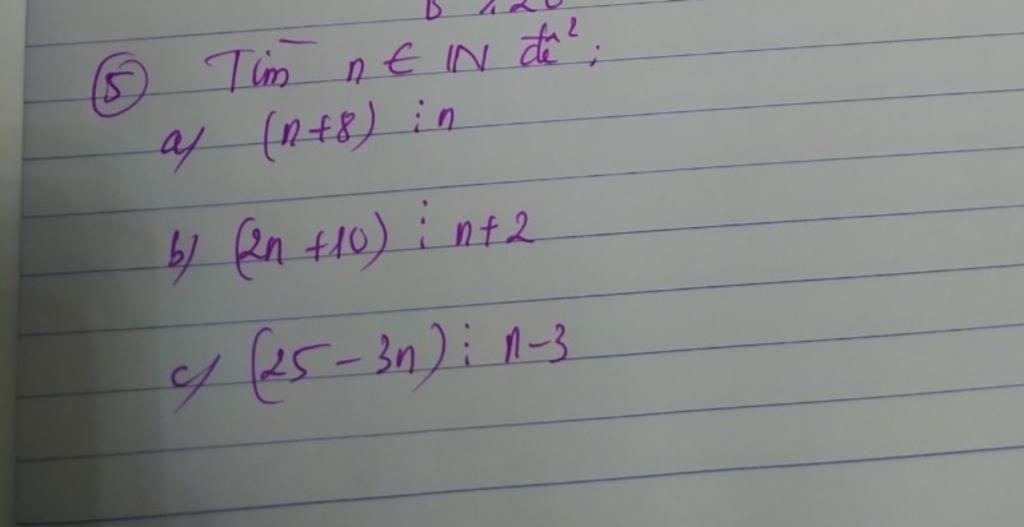 ⑤ Tìm n ∈ IN để:
a) (n+8) ⋮ n
b) (2n+10) ⋮ n+2
c) (25-3n) ⋮ n-3